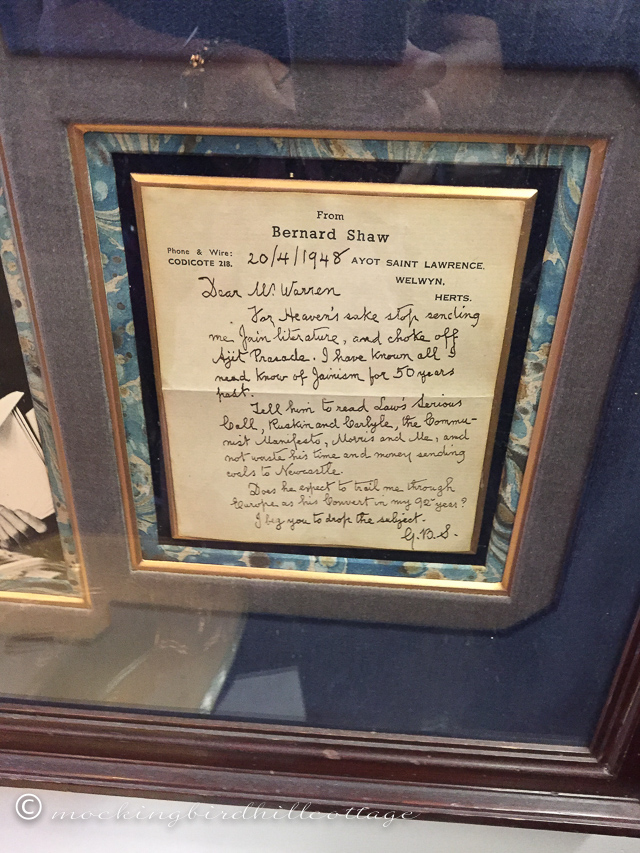 From
Bernard Shaw
Phone & Wire:
CODICOTE 218.
20/4/1948
AYOT SAINT LAWRENCE,
WELWYN,
HERTS.
Dear Mr. Warren
For Heaven's sake stop sending
me Jain literature, and choke off
Ajit Prasada. I have known all I
need know of Jainism for 50 years
past.
Tell him to read Law's Serious
Call, Ruskin and Carlyle, the Commu-
nist Manifesto, Morris and Me, and
not waste his time and money sending
coals to Newcastle.
Does he expect to trail me through
Europe as his Convert in my 92nd year?
I beg you to drop the subject.
G.B.S.
© mockingbirdhillcottage